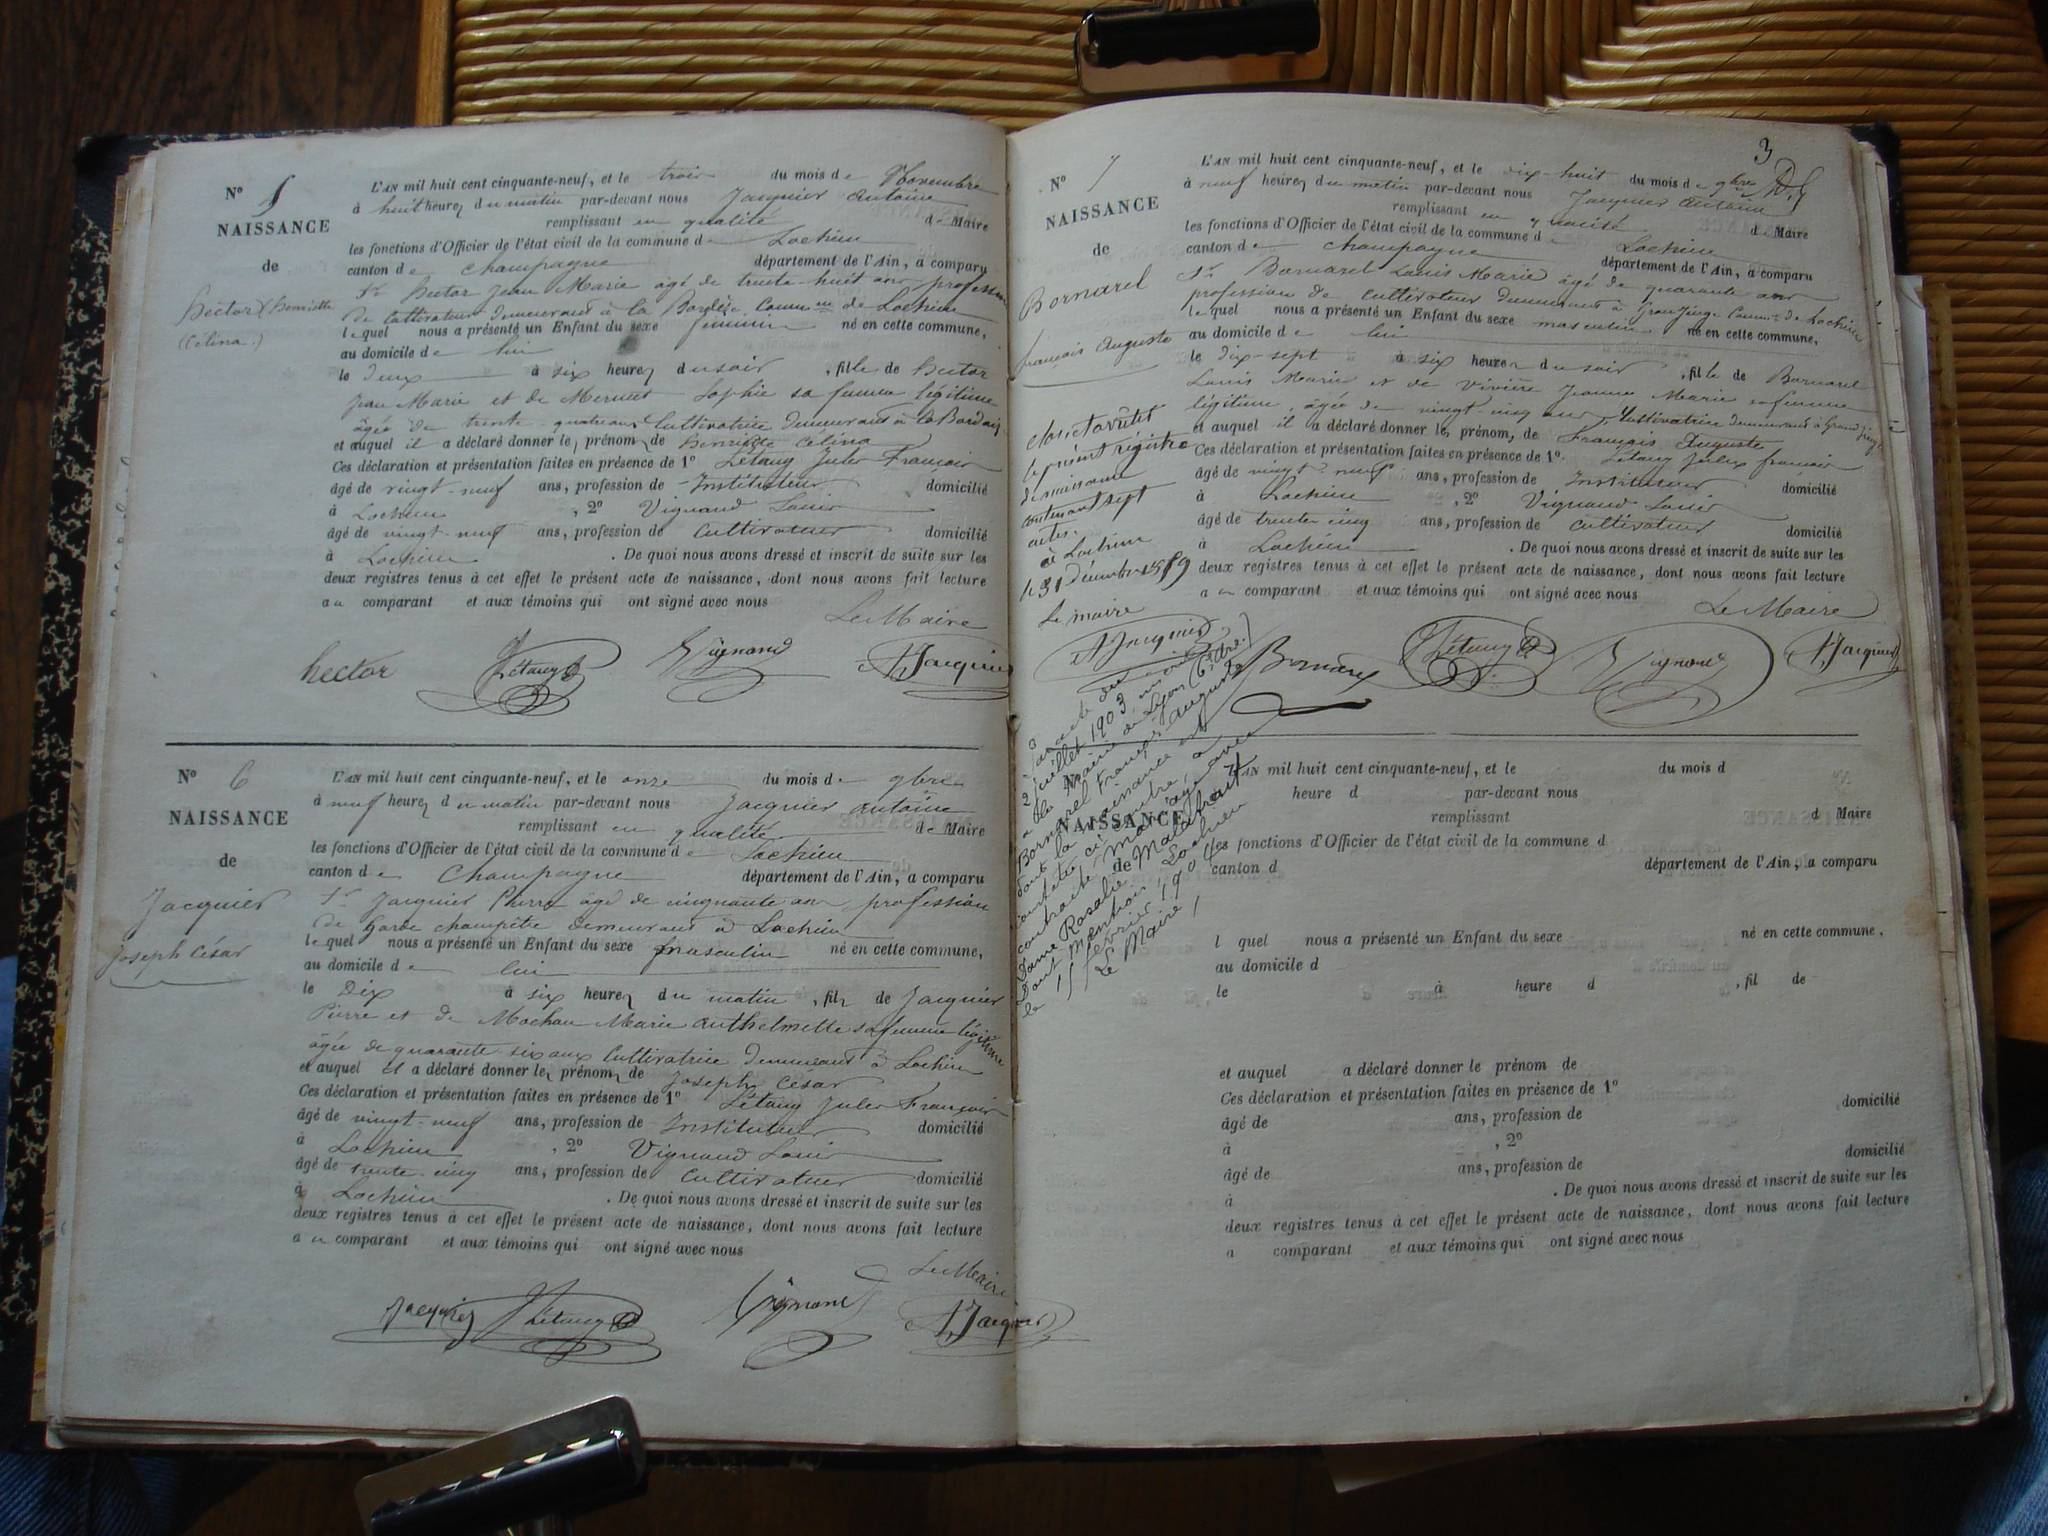 N° 5
NAISSANCE
de
hector (henriette
Célina.)
L'AN mil huit cent cinquante-neuf, et le trois du mois de Novembre
à huit heures du matin par-devant nous Jacquier Antoine
remplissant en qualité de Maire
les fonctions d'Officier de l'état civil de la commune de Lochieu
canton de Champagne département de l'Ain, a comparu
Sr Hector Jean Marie âgé de trente-huit ans profession
de Cultivateur demeurant à la Commune de Lochieu
lequel nous a présenté un Enfant du sexe féminin né en cette commune,
au domicile de lui
le deux à six heures du soir, fille de hector
Jean Marie et de Mermet Sophie sa femme légitime
âgée de trente-quatre ans Cultivatrice demeurant à
et auquel il a déclaré donner les prénoms de henriette Célina
Ces déclaration et présentation faites en présence de 1° Létang Jules François
âgé de vingt-neuf ans, profession de Instituteur domicilié
à Lochieu, 2° Vignand Louis
âgé de vingt-neuf ans, profession de Cultivateur domicilié
à Lochieu. De quoi nous avons dressé et inscrit de suite sur les
deux registres tenus à cet effet le présent acte de naissance, dont nous avons fait lecture
au comparant et aux témoins qui ont signé avec nous
Le Maire
hector Létang Vignand A. Jacquier
N° 6
NAISSANCE
de
Jacquier
Joseph César
L'AN mil huit cent cinquante-neuf, et le onze du mois de 9bre
à neuf heures du matin par-devant nous Jacquier Antoine
remplissant en qualité de Maire
les fonctions d'Officier de l'état civil de la commune de Lochieu
canton de Champagne département de l'Ain, a comparu
Sr Jacquier Pierre âgé de cinquante ans profession
de Garde champêtre demeurant à Lochieu
lequel nous a présenté un Enfant du sexe masculin né en cette commune,
au domicile de lui
le Dix à six heures du matin, fils de Jacquier
Pierre et de Mochon Marie Anthelmette sa femme légitime
âgée de quarante six ans Cultivatrice demeurant à Lochieu
et auquel il a déclaré donner les prénoms de Joseph César
Ces déclaration et présentation faites en présence de 1° Létang Jules François
âgé de vingt-neuf ans, profession de Instituteur domicilié
à Lochieu, 2° Vignand Louis
âgé de trente-cinq ans, profession de Cultivateur domicilié
à Lochieu. De quoi nous avons dressé et inscrit de suite sur les
deux registres tenus à cet effet le présent acte de naissance, dont nous avons fait lecture
au comparant et aux témoins qui ont signé avec nous
Le Maire
Jacquier Létang Vignand A. Jacquier
3
N° 7
NAISSANCE
de
Bornarel
françois Auguste
L'AN mil huit cent cinquante-neuf, et le dix-huit du mois de 9bre
à neuf heures du matin par-devant nous Jacquier Antoine
remplissant en qualité de Maire
les fonctions d'Officier de l'état civil de la commune de Lochieu
canton de Champagne département de l'Ain, a comparu
Sr Bornarel Louis Marie âgé de quarante ans
profession de Cultivateur demeurant à Commune de Lochieu
lequel nous a présenté un Enfant du sexe masculin né en cette commune,
au domicile de lui
le dix-sept à six heures du soir, fils de Bornarel
Louis Marie et de Vivière Jeanne Marie sa femme
légitime, âgée de vingt-cinq ans, Cultivatrice demeurant à
et auquel il a déclaré donner les prénoms de François Auguste
Ces déclaration et présentation faites en présence de 1° Létang Jules françois
âgé de vingt-neuf ans, profession de Instituteur domicilié
à Lochieu, 2° Vignand Louis
âgé de trente-cinq ans, profession de Cultivateur domicilié
à Lochieu. De quoi nous avons dressé et inscrit de suite sur les
deux registres tenus à cet effet le présent acte de naissance, dont nous avons fait lecture
au comparant et aux témoins qui ont signé avec nous
Le Maire
Bornarel Létang Vignand A. Jacquier
Clos et arrêté
le présent registre
de naissance
contenant sept
actes.
à Lochieu
le 31 décembre 1859
Le maire
A Jacquier
Par acte du
2 juillet 1903, inscrit
à la Mairie de Lyon (6e Arr.)
Bornarel François Auguste
dont la naissance est
constatée ci-contre, a
contracté mariage avec
Dame Rosalie Malatrait
Dont Mention, Lochieu
le 15 février 1904
Le Maire,
NAISSANCE
de
L'AN mil huit cent cinquante-neuf, et le du mois d
heure d par-devant nous
remplissant d Maire
les fonctions d'Officier de l'état civil de la commune d
canton d département de l'Ain, a comparu
l quel nous a présenté un Enfant du sexe né en cette commune,
au domicile d
le à heure d, fil de
et auquel a déclaré donner le prénom de
Ces déclaration et présentation faites en présence de 1°
âgé de ans, profession de domicilié
à, 2°
âgé de ans, profession de domicilié
à. De quoi nous avons dressé et inscrit de suite sur les
deux registres tenus à cet effet le présent acte de naissance, dont nous avons fait lecture
a comparant et aux témoins qui ont signé avec nous